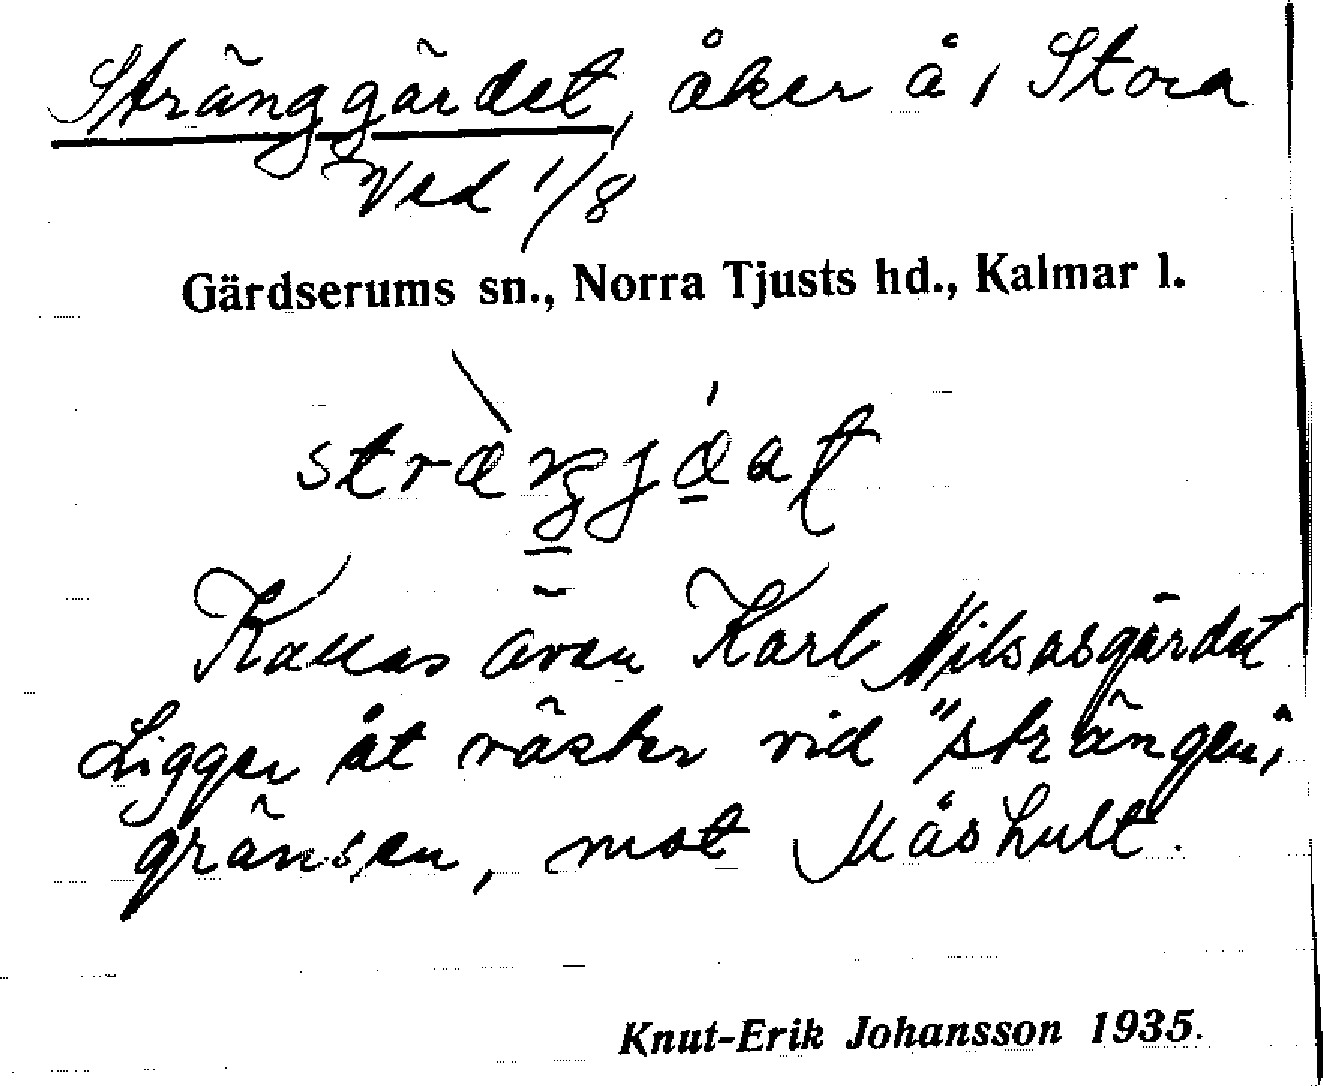 Stränggärdet, åker å 1 Stora
Ved 1/8
Gärdserums sn., Norra Tjusts hd., Kalmar l.
Kallas även Karl Nilsasgärdet
Ligger åt väster vid "strängen",
gränsen, mot Måshult.
Knut-Erik Johansson 1935.